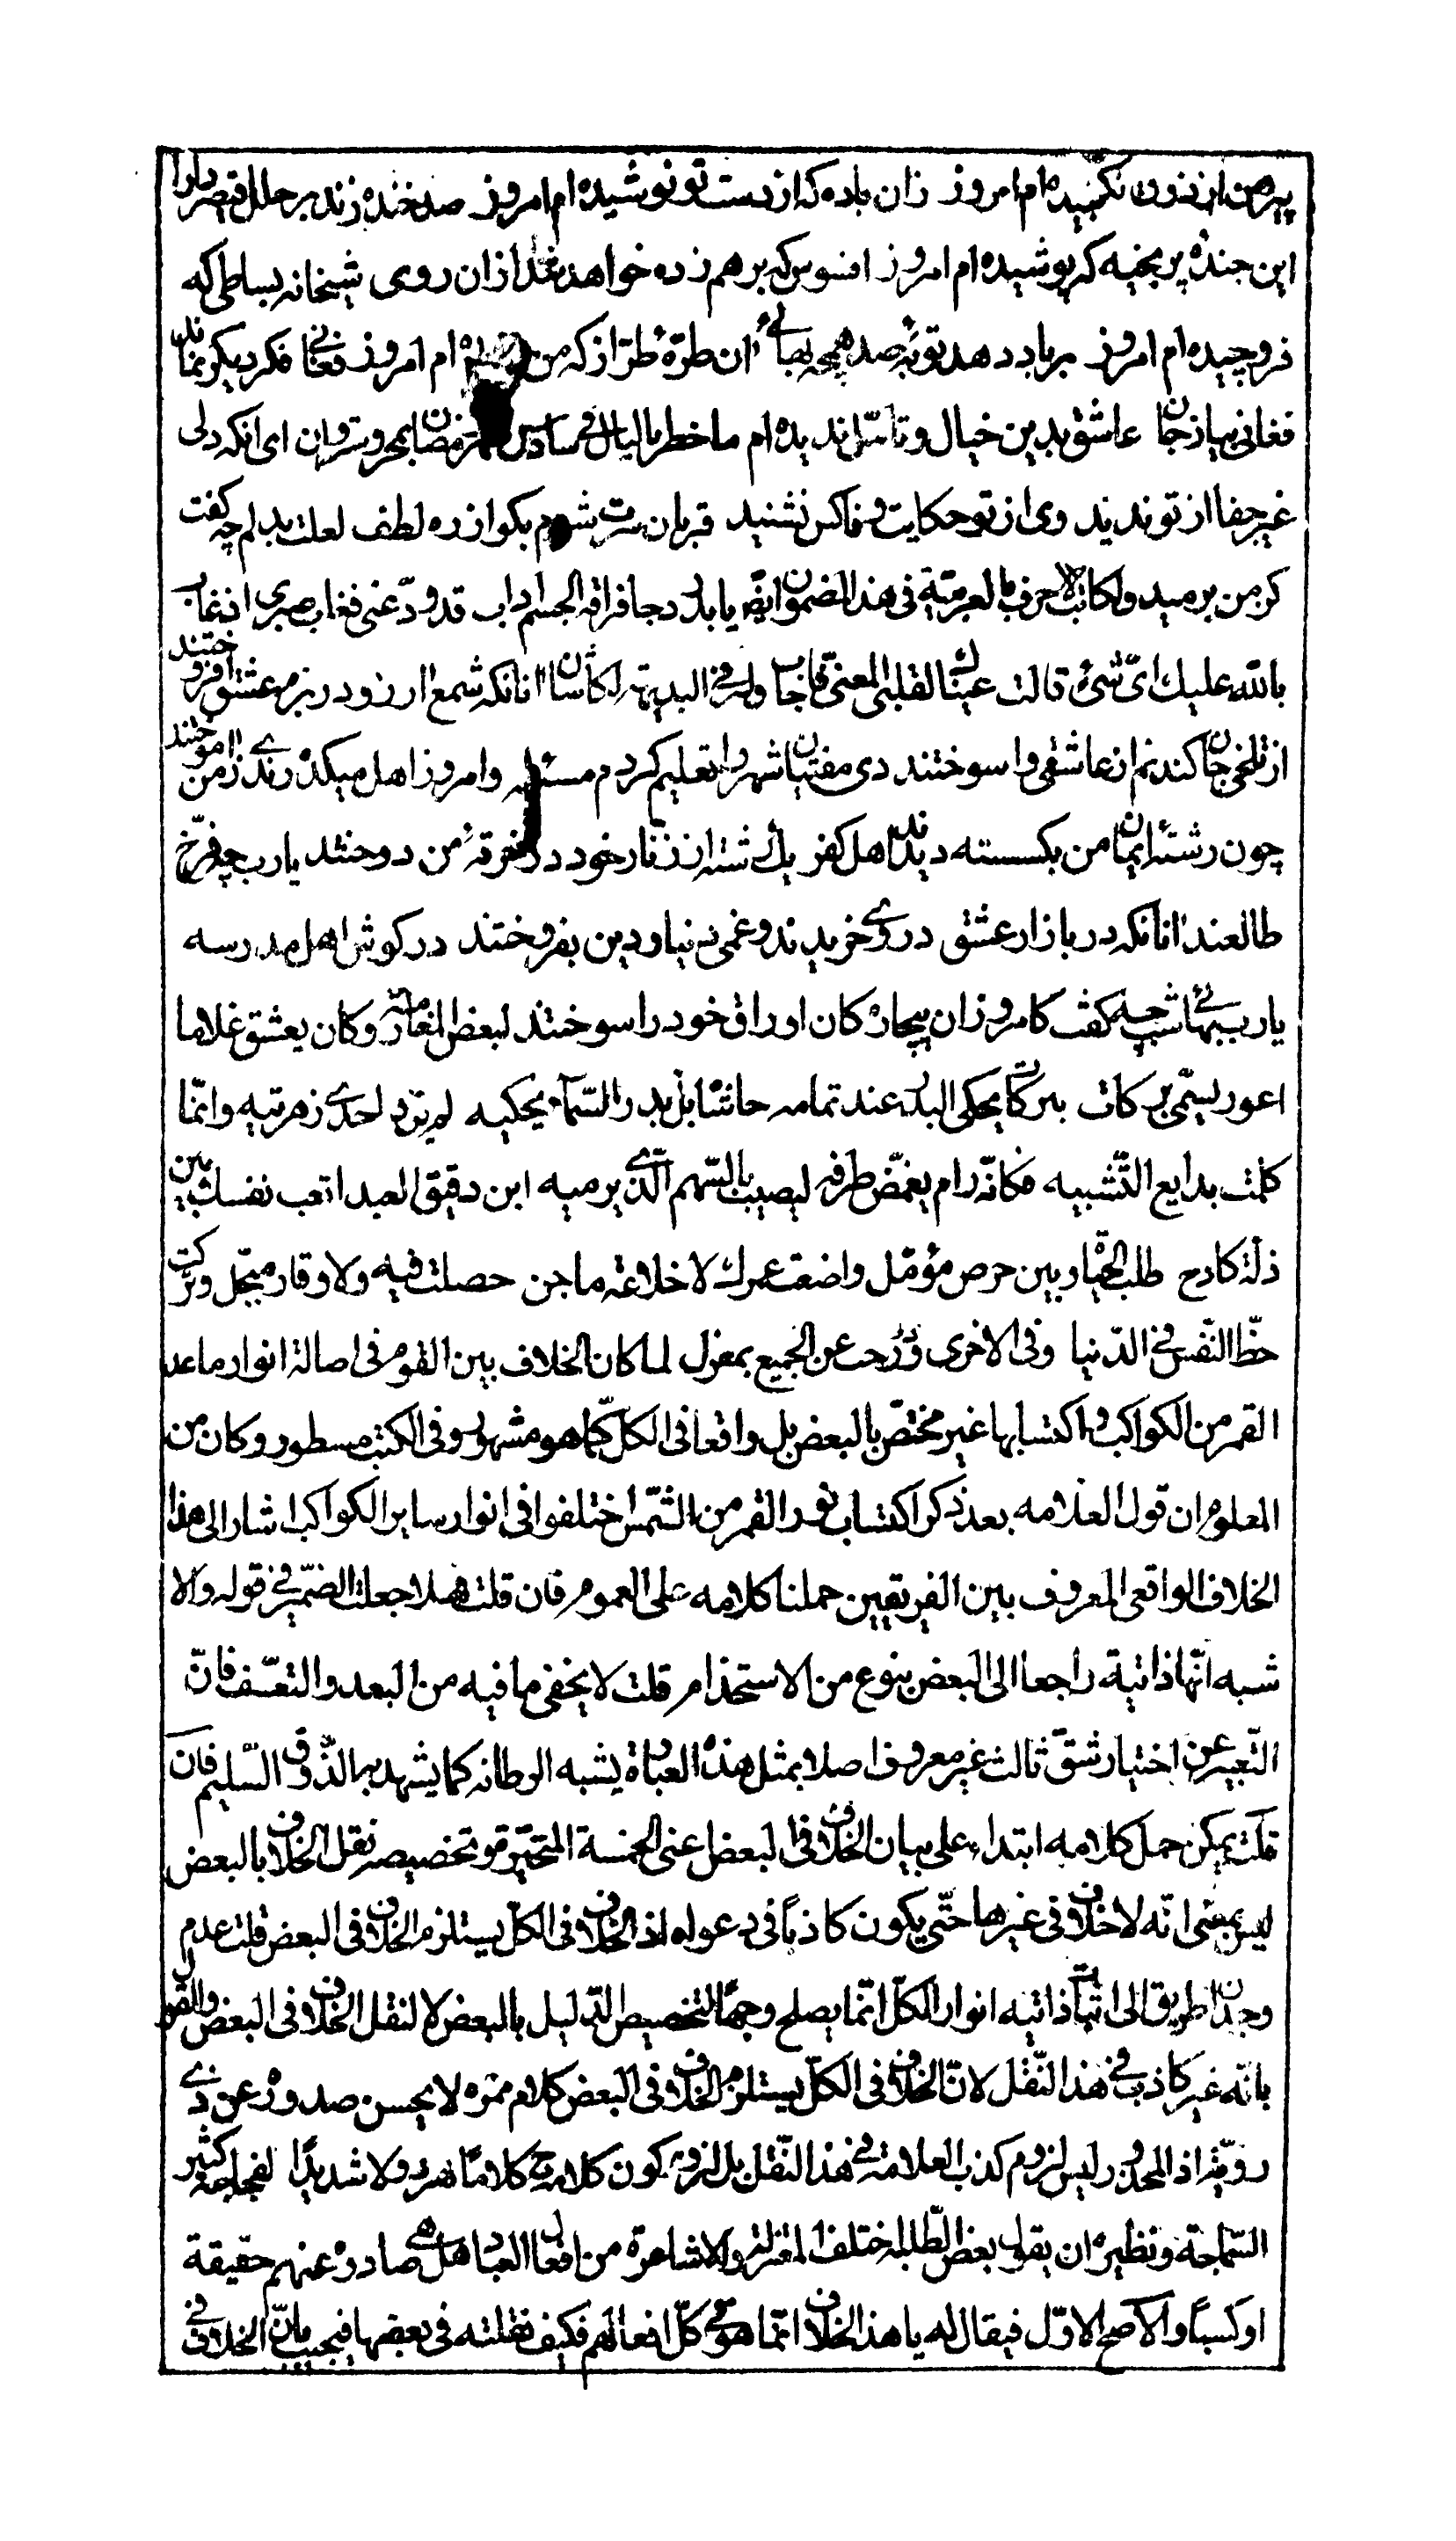 پیرهن از ذوق نگنجیده‌ام امروز زان باده که از دست تو نوشیده‌ام امروز صد خنده زند بر حلل قیصر و دارا
این جندهٔ پر بخیه که پوشیده‌ام امروز افسوس که برهم زده خواهد شد ازان روی شیخانه بساطی که
فروچیده‌ام امروز برباد دهد توبهٔ صد همچو بهائی ان طرّهٔ طرّار که من ام امروز فغانی فکر دیگر نماند
فغانی بیاز جان عاشق بدین خیال و تامّل ندیده‌ام ما خطر بالبال رمضان بحر و ستر وان ای انکه دلی
غیر جفا از تو ندید وی از تو حکایت وفا کس نشنید قربان سرت شوم بکو از ره لطف لعلت بدلم چه کفت
کز من برمید ولکاتب الاحرف بالعربیّة فی هذا المضمون ایضا یا بدر دجا فراقه الجسم اذاب قد ودّعنی فغاب صبری اذ غاب
بالله علیك ایّ شئ قالت عینالک لقلبی المعنّی فاجاب وله فی البدیهة لکاشان انانکه شمع ارزو در بزم عشق افروختند
از تلخی جان کندنم از عاشقی وا سوختند دی مفتیان شهر را تعلیم کردم مسئله وامروز اهل میکده رندی ز من اموختند
چون رشتهٔ ایمان من بکسسته دیدند اهل کفر یك رشته از زنّار خود در خرقهٔ من دوختند یا رب چه فرّخ
طالعند انانکه در بازار عشق دردی خریدند و غمی دنیا و دین بفروختند در کوش اهل مدرسه
یا رب بهائی شب چه کفت کامروز ان بیچاره کان اوراق خود را سوختند لبعض المغاربة وکان یعشق غلاما
اعور یسمّی برکات برکات یحکی البدر عند تمامه حاشا بل بدر السّماء یحکیه لم تزد احدی زهرتیه وانّما
کملت بدایع التّشبیه فکانّه رام یغمّض طرفه لیصیب بالسّهم الّذی یرمیه ابن دقیق العید اتعب نفسك بین
ذلّة کادح طلب الحیاة وبین حرص مؤمّل واضعت عمرك لا خلاعة ماجن حصلت فیه ولا وقار مبجّل وترکت
حظّ النّفس فی الدّنیا وفی الاخری ورحت عن الجمیع بمعزل لما کان الخلاف بین القوم فی اصالة انوار ما عدا
القمر من الکواکب واکتسابها غیر مختصّ بالبعض بل واقعا فی الکلّ کما هو مشهور وفی الکتب مسطور وکان من
المعلوم ان قول العلامه بعد ذکر اکتساب نور القمر من الشّمس اختلفوا فی انوار سایر الکواکب اشار الی هذا
الخلاف الواقعی المعروف بین الفریقین حملنا کلامه علی العموم فان قلت هلا جعلت الضّمیر فی قوله والا
شبه انّها ذاتیة راجعا الی البعض بنوع من الاستخدام قلت لا یخفی ما فیه من البعد والتعسّف فانّ
التّعبیر عن اختیار شقّ ثالث غیر معروف اصلا بمثل هذه العبارة یشبه الرطانه کما یشهد به الذّوق السّلیم فان
قلت یمکن حمل کلامه ابتداء علی بیان الخلاف فی البعض اعنی الخمسة المتحیّرة وتخصیصه نقل الخلاف بالبعض
لیس بمعنی انّه لا خلاف فی غیرها حتّی یکون کاذباً فی دعواه اذ الخلاف فی الکلّ یستلزم الخلاف فی البعض قلت عدم
وجدان طریق الی اثبات ذاتیه انوار الکلّ انّما یصلح وجها لتخصیص الدّلیل بالبعض لا لنقل الخلاف فی البعض والقول
بانّه غیر کاذب فی هذا النّقل لانّ الخلاف فی الکلّ یستلزم الخلاف فی البعض کلام مموّه لا یحسن صدوره عن ذی
رویّة اذ المحذور لیس لزوم کذب العلامة فی هذا النّقل بل لزوم کون کلامه کلاماً مرذولا شدید الفجاجة کثیر
السّماجة ونظیره ان یقول بعض الطّلبه اختلف المعتزلة والاشاعرة من افعال العباد هل هی صادرة عنهم حقیقة
او کسباً والاصح الاوّل فیقال له یا هذا الخلاف انّما هو فی کلّ افعالهم فکیف نقلته فی بعضها فیجیب بانّ الخلاف فی